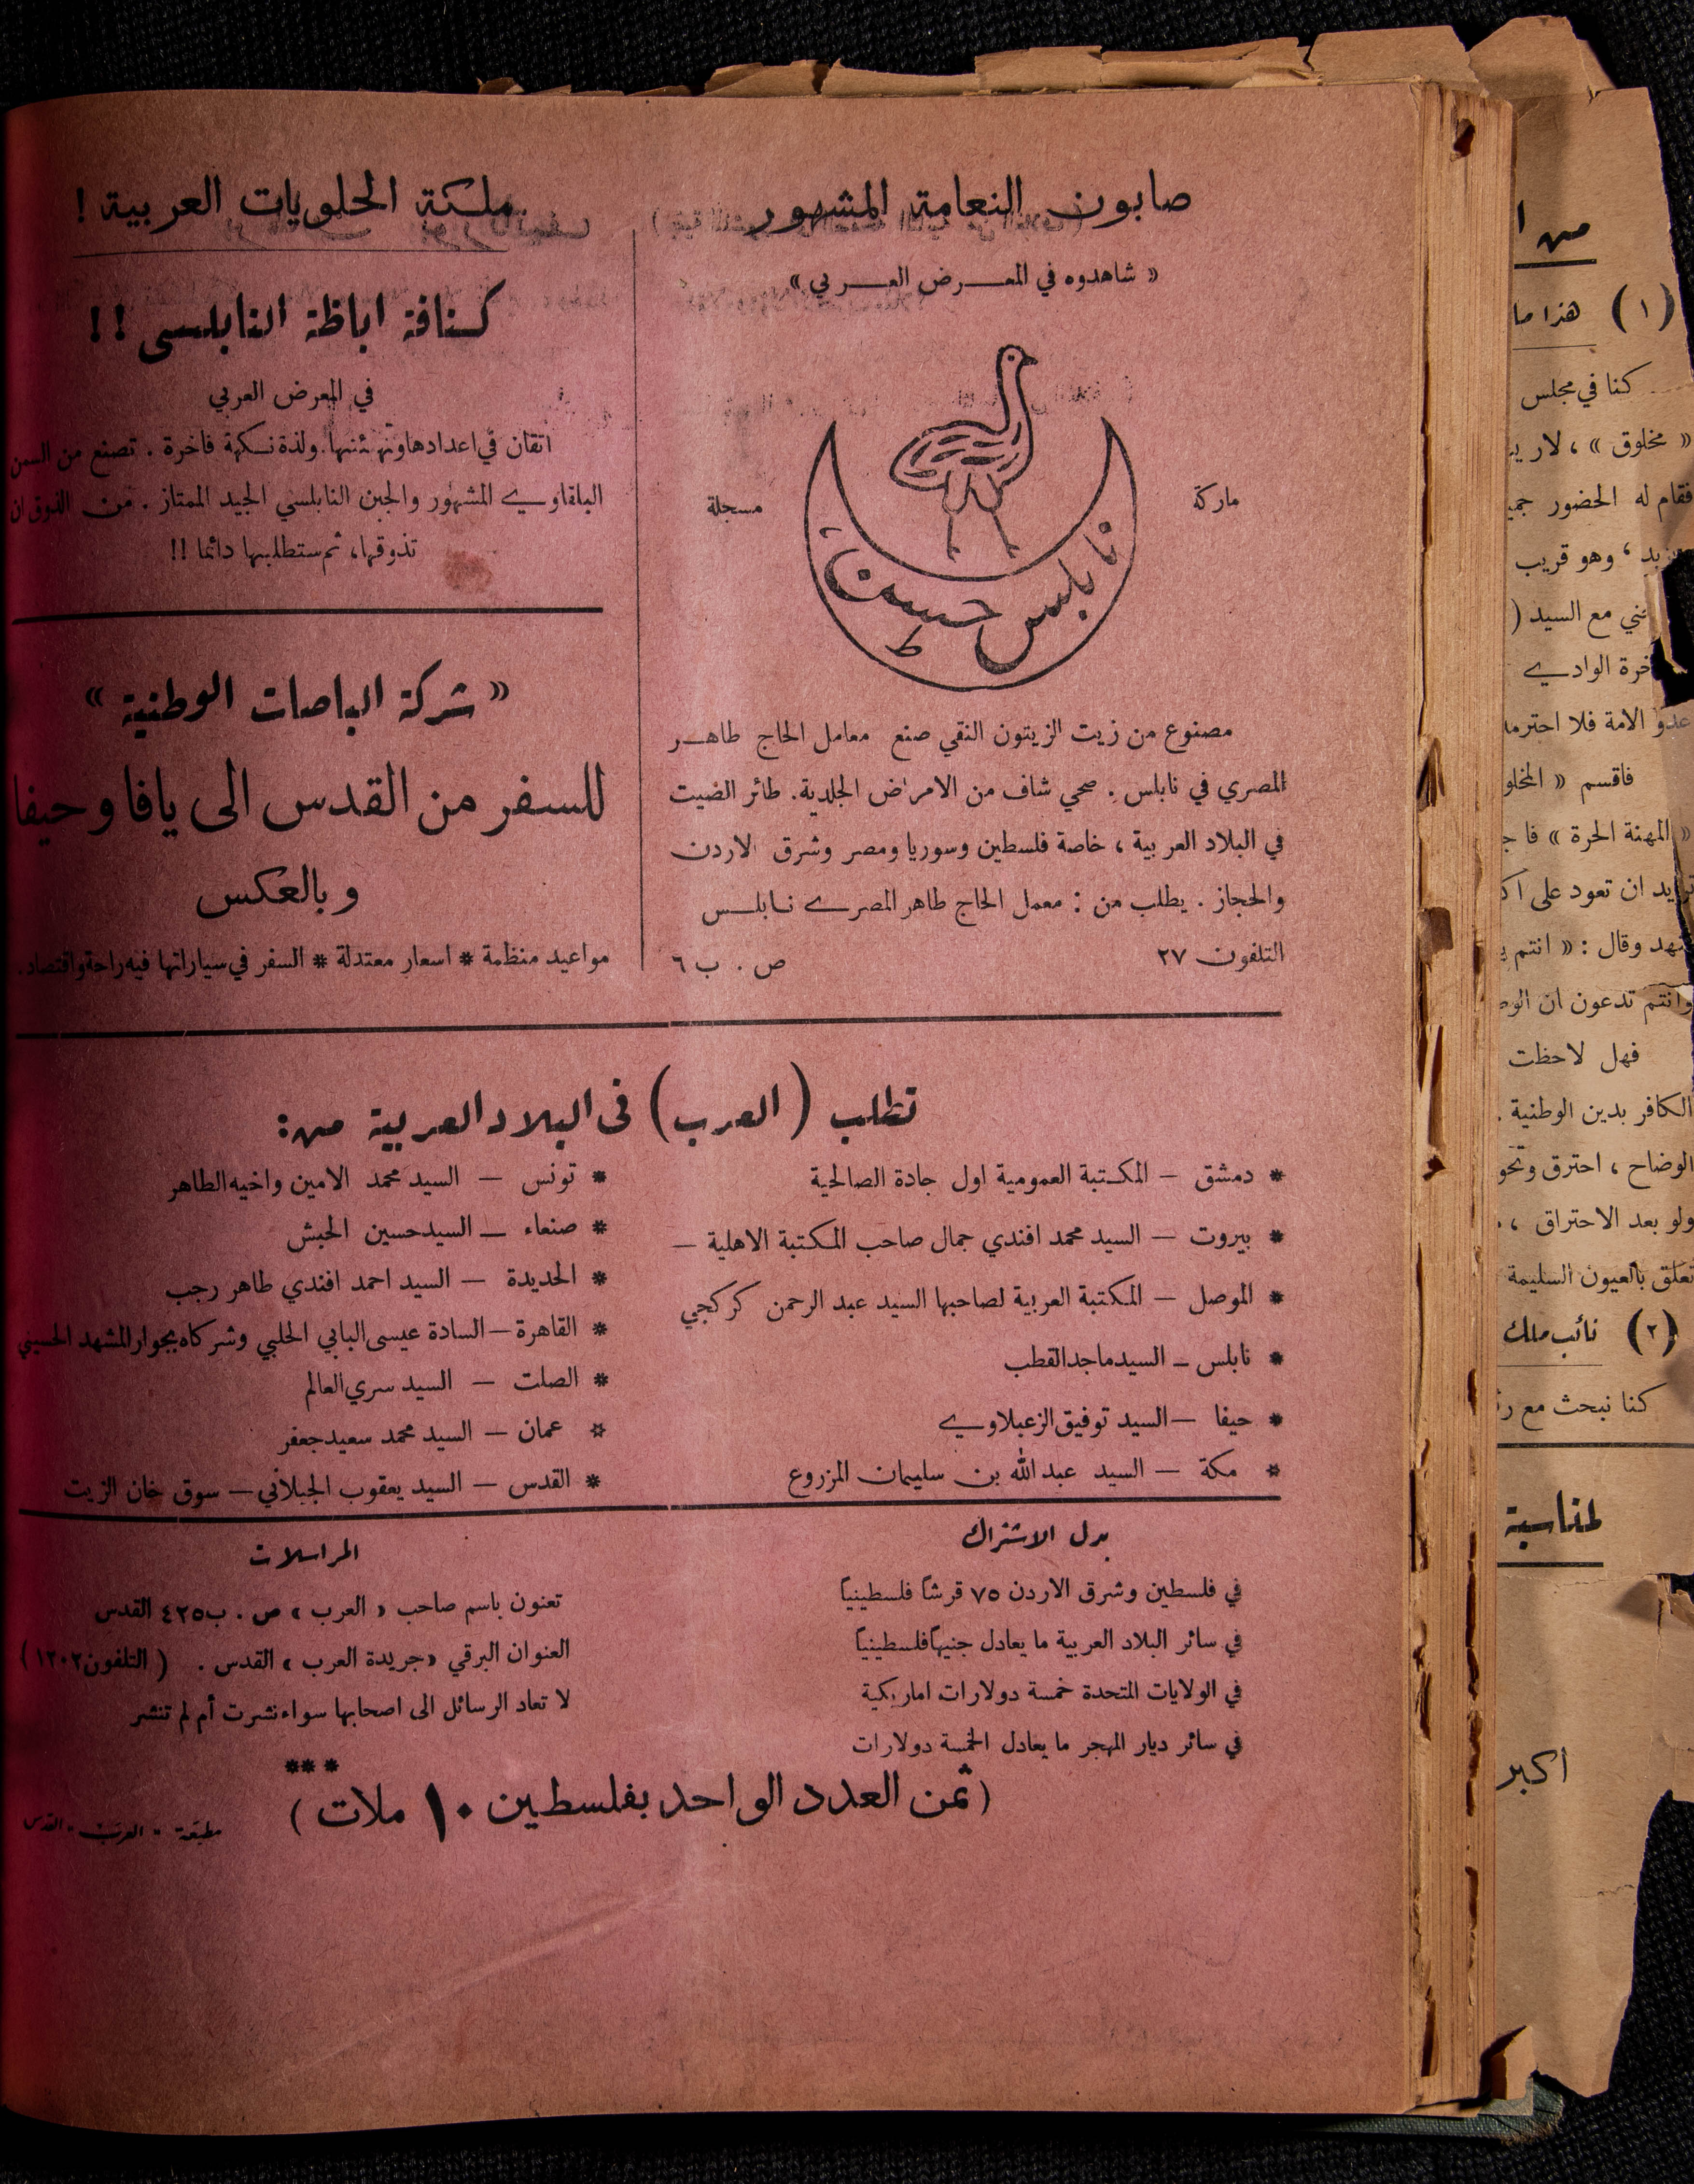 صابون النعامة المشهور
« شاهدوه في المعرض العربي »
ماركة
مسجلة
نابلس حسن
ط
مصنوع من زيت الزيتون النقي صنع معامل الحاج طاهر
المصري في نابلس . صحي شاف من الامراض الجلدية. طائر الضيت
في البلاد العربية ، خاصة فلسطين وسوريا ومصر وشرق الاردن
والحجاز . يطلب من : معمل الحاج طاهر المصري نابلس
التلفون ٢٧ ص . ب ٦
ملكة الحلويات العربية !
كنافة اباظة النابلسى !!
في المعرض العربي
اتقان في اعدادها وتهيئتها. ولذة نكهة فاخرة . تصنع من السمن
البلقاوي المشهور والجبن النابلسي الجيد الممتاز . من الذوق ان
تذوقها، ثم ستطلبها دائما !!
« شركة الباصات الوطنية »
للسفر من القدس الى يافا و حيفا
و بالعكس
مواعيد منظمة * اسعار معتدلة * السفر في سياراتها فيه راحة واقتصاد.
تطلب ( العرب ) فى البلاد العربية من:
* دمشق – المكتبة العمومية اول جادة الصالحية
* بيروت – السيد محمد افندي جمال صاحب المكتبة الاهلية –
* الموصل – المكتبة العربية لصاحبها السيد عبد الرحمن كركجي
* نابلس – السيد ماجد القطب
* حيفا – السيد توفيق الزعبلاوي
* مكة – السيد عبد الله بن سليمان المزروع
* تونس – السيد محمد الامين واخيه الطاهر
* صنعاء – السيد حسين الحبش
* الحديدة – السيد احمد افندي طاهر رجب
* القاهرة – السادة عيسى البابي الحلبي وشركاه بجوار المشهد الحسيني
* الصلت – السيد سري العالم
* عمان – السيد محمد سعيد جعفر
* القدس – السيد يعقوب الجيلاني – سوق خان الزيت
بدل الاشتراك
في فلسطين وشرق الاردن ٧٥ قرشاً فلسطينياً
في سائر البلاد العربية ما يعادل جنيهاً فلسطينياً
في الولايات المتحدة خمسة دولارات اماريكية
في سائر ديار المهجر ما يعادل الخمسة دولارات
المراسلات
تعنون باسم صاحب « العرب » ص . ب ٤٢٥ القدس
العنوان البرقي «جريدة العرب » القدس . ( التلفون ١٢٠٢ )
لا تعاد الرسائل الى اصحابها سواء نشرت أم لم تنشر
***
(ثمن العدد الواحد بفلسطين ١٠ ملات )
مطبعة « العرب » القدس
من ا
( ١ ) هذا ما
كنا في مجلس
« مخلوق » ، لا
فقام له الحضور
، وهو قريب
مع السيد (
الوادي
عدو الامة فلا
فاقسم «
« المهنة الحرة »
ان تعود على
وقال : « انتم
وانتم تدعون ان
فهل لاحظت
الكافر بدين الوطنية .
الوضاح ، احترق
ولو بعد الاحتراق ،
تعلق بالعيون السليمة
( ٢ ) نائب ملك
كنا نبحث مع
لمناسبة
اكبر